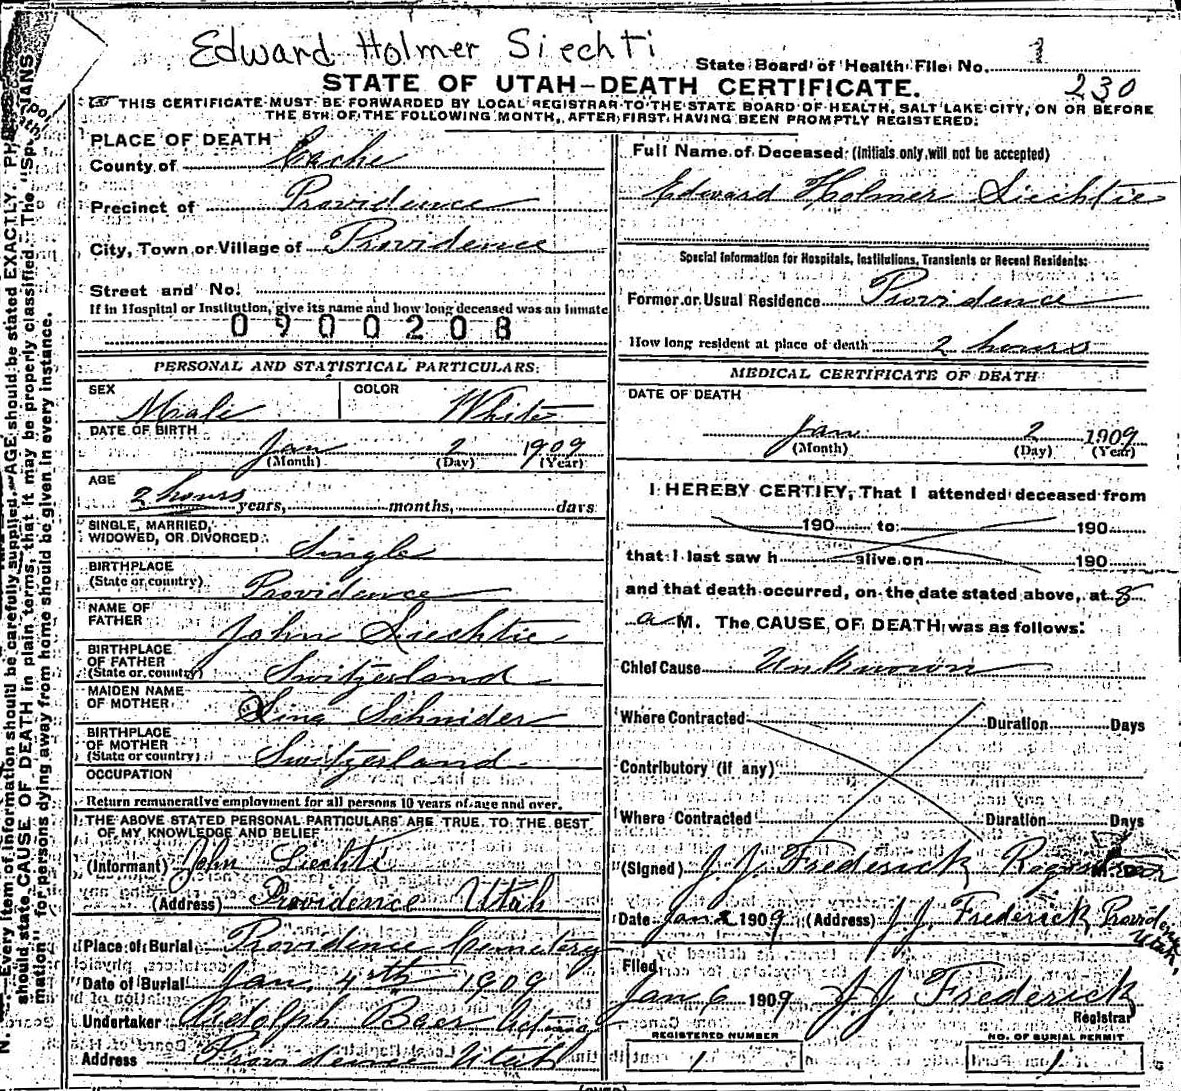 Edward Holmer Siechti
State Board of Health File No. 1
230
STATE OF UTAH-DEATH CERTIFICATE.
THIS CERTIFICATE MUST BE FORWARDED BY LOCAL REGISTRAR TO THE STATE BOARD OF HEALTH, SALT LAKE CITY, ON OR BEFORE
THE 5TH OF THE FOLLOWING MONTH, AFTER FIRST HAVING BEEN PROMPTLY REGISTERED.
PLACE OF DEATH
County of Cache
Precinct of Providence
City, Town or Village of Providence
Street and No.
If in Hospital or Institution, give its name and how long deceased was an inmate
0900208
PERSONAL AND STATISTICAL PARTICULARS.
SEX Male COLOR White
DATE OF BIRTH
Jan 2 1909
(Month) (Day) (Year)
AGE
2 hours years, months, days
SINGLE, MARRIED,
WIDOWED, OR DIVORCED. Single
BIRTHPLACE
(State or country) Providence
NAME OF
FATHER John Liechtie
BIRTHPLACE
OF FATHER
(State or country) Switzerland
MAIDEN NAME
OF MOTHER Lina Schnider
BIRTHPLACE
OF MOTHER
(State or country) Switzerland
OCCUPATION
Return remunerative employment for all persons 10 years of age and over.
THE ABOVE STATED PERSONAL PARTICULARS ARE TRUE TO THE BEST
OF MY KNOWLEDGE AND BELIEF
(Informant) John Liechti
(Address) Providence Utah
Place of Burial Providence Cemetery
Date of Burial Jan. 4th 1909
Undertaker Rudolph Beer Acting
Address Providence Utah
Full Name of Deceased (Initials only will not be accepted)
Edward Holmer Siechtie
Special Information for Hospitals, Institutions, Transients or Recent Residents:
Former or Usual Residence Providence
How long resident at place of death 2 hours
MEDICAL CERTIFICATE OF DEATH
DATE OF DEATH
Jan 2 1909
(Month) (Day) (Year)
I HEREBY CERTIFY, That I attended deceased from
190 to 190
that I last saw h alive on 190
and that death occurred, on the date stated above, at 8
a M. The CAUSE OF DEATH was as follows:
Chief Cause Unknown
Where Contracted Duration Days
Contributory (if any)
Where Contracted Duration Days
(Signed) J. J. Frederick Registrar
Date Jan 2 1909 (Address) J. J. Frederick Providence Utah,
Filed
Jan 6 1909 J J Frederick
Registrar
REGISTERED NUMBER
1
NO. OF BURIAL PERMIT
1
(OVER)
N. Every item of information should be carefully supplied. AGE should be stated EXACTLY.
should state CAUSE OF DEATH in plain terms, that it may be properly classified. The "Sp
mation" for persons dying away from home should be given in every instance.